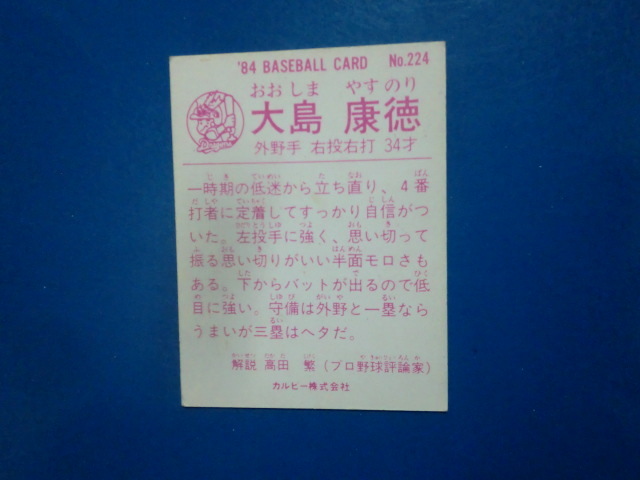 '84 BASEBALL CARD No.224
おおしま やすのり
大島 康徳
外野手 右投右打 34才
一時期の低迷から立ち直り、4番
打者に定着してすっかり自信がつ
いた。左投手に強く、思い切って
振る思い切りがいい半面モロさも
ある。下からバットが出るので低
目に強い。守備は外野と一塁なら
うまいが三塁はヘタだ。
解説 高田 繁(プロ野球評論家)
カルビー株式会社